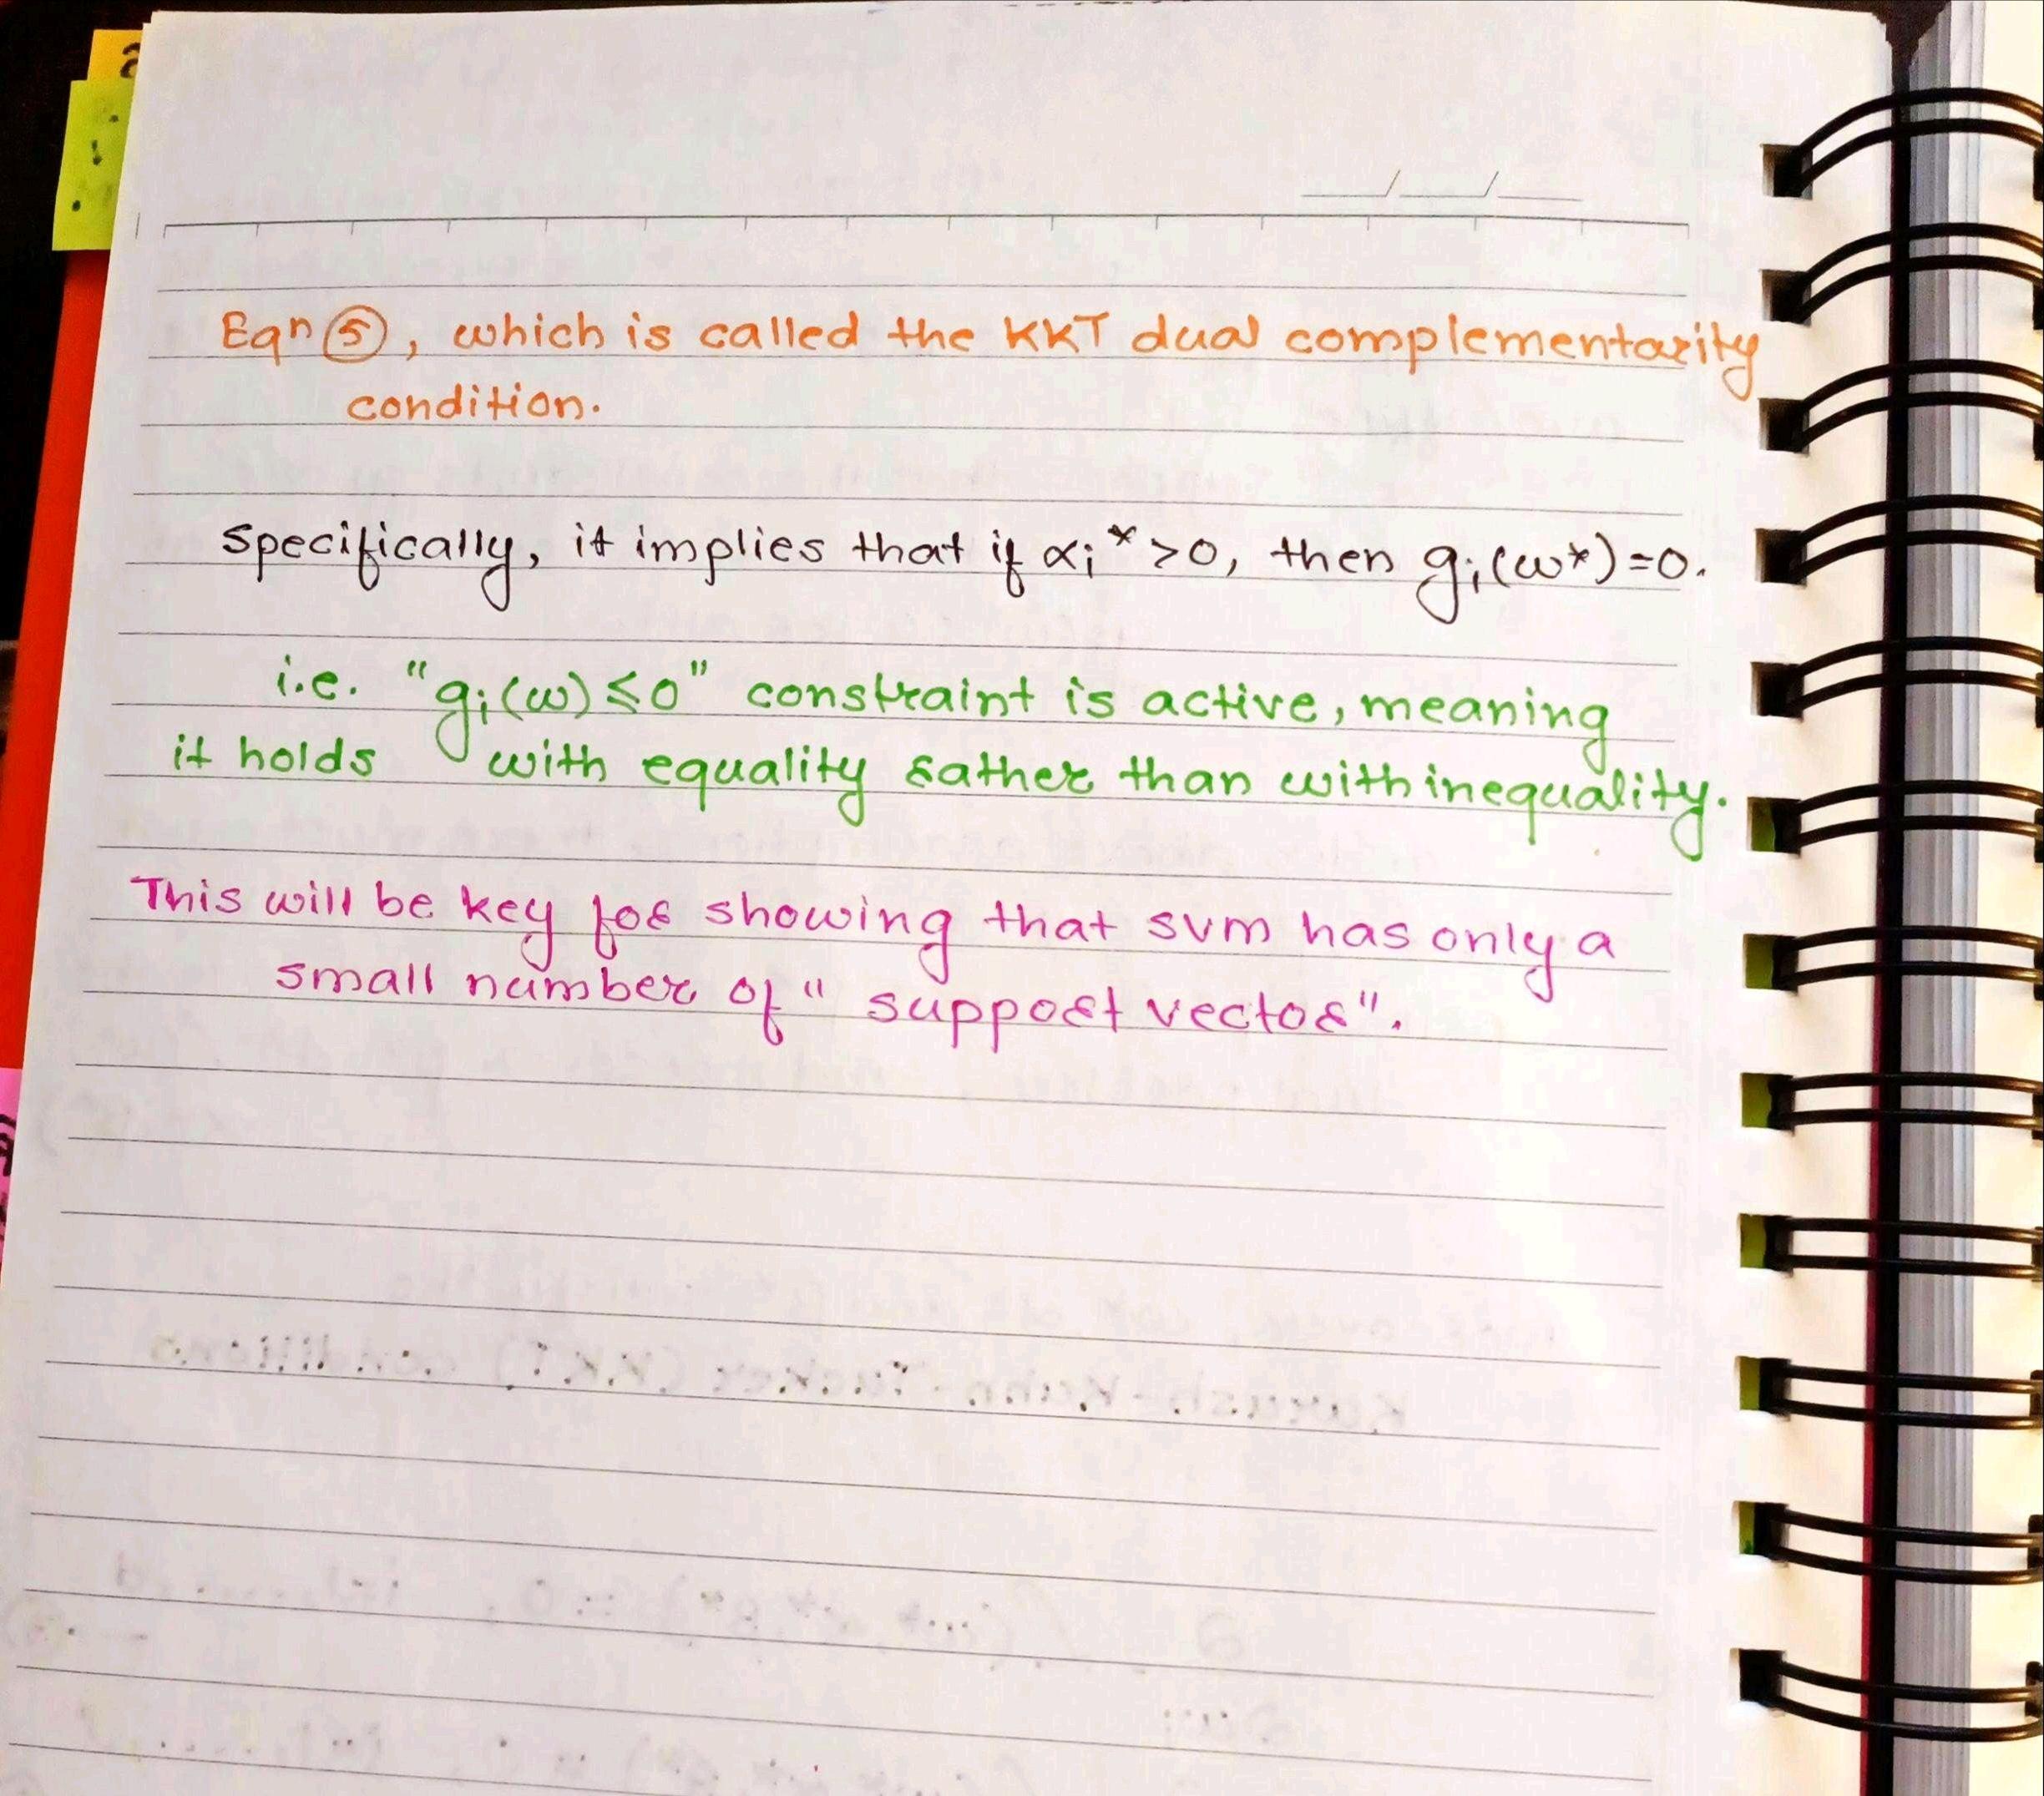 Eqn ⑤, which is called the KKT dual complementarity
condition.
Specifically, it implies that if αi* >0, then gi(w*)=0.
i.e. "gi(w)≤0" constraint is active, meaning
it holds with equality rather than with inequality.
This will be key for showing that svm has only a
small number of "support vector".